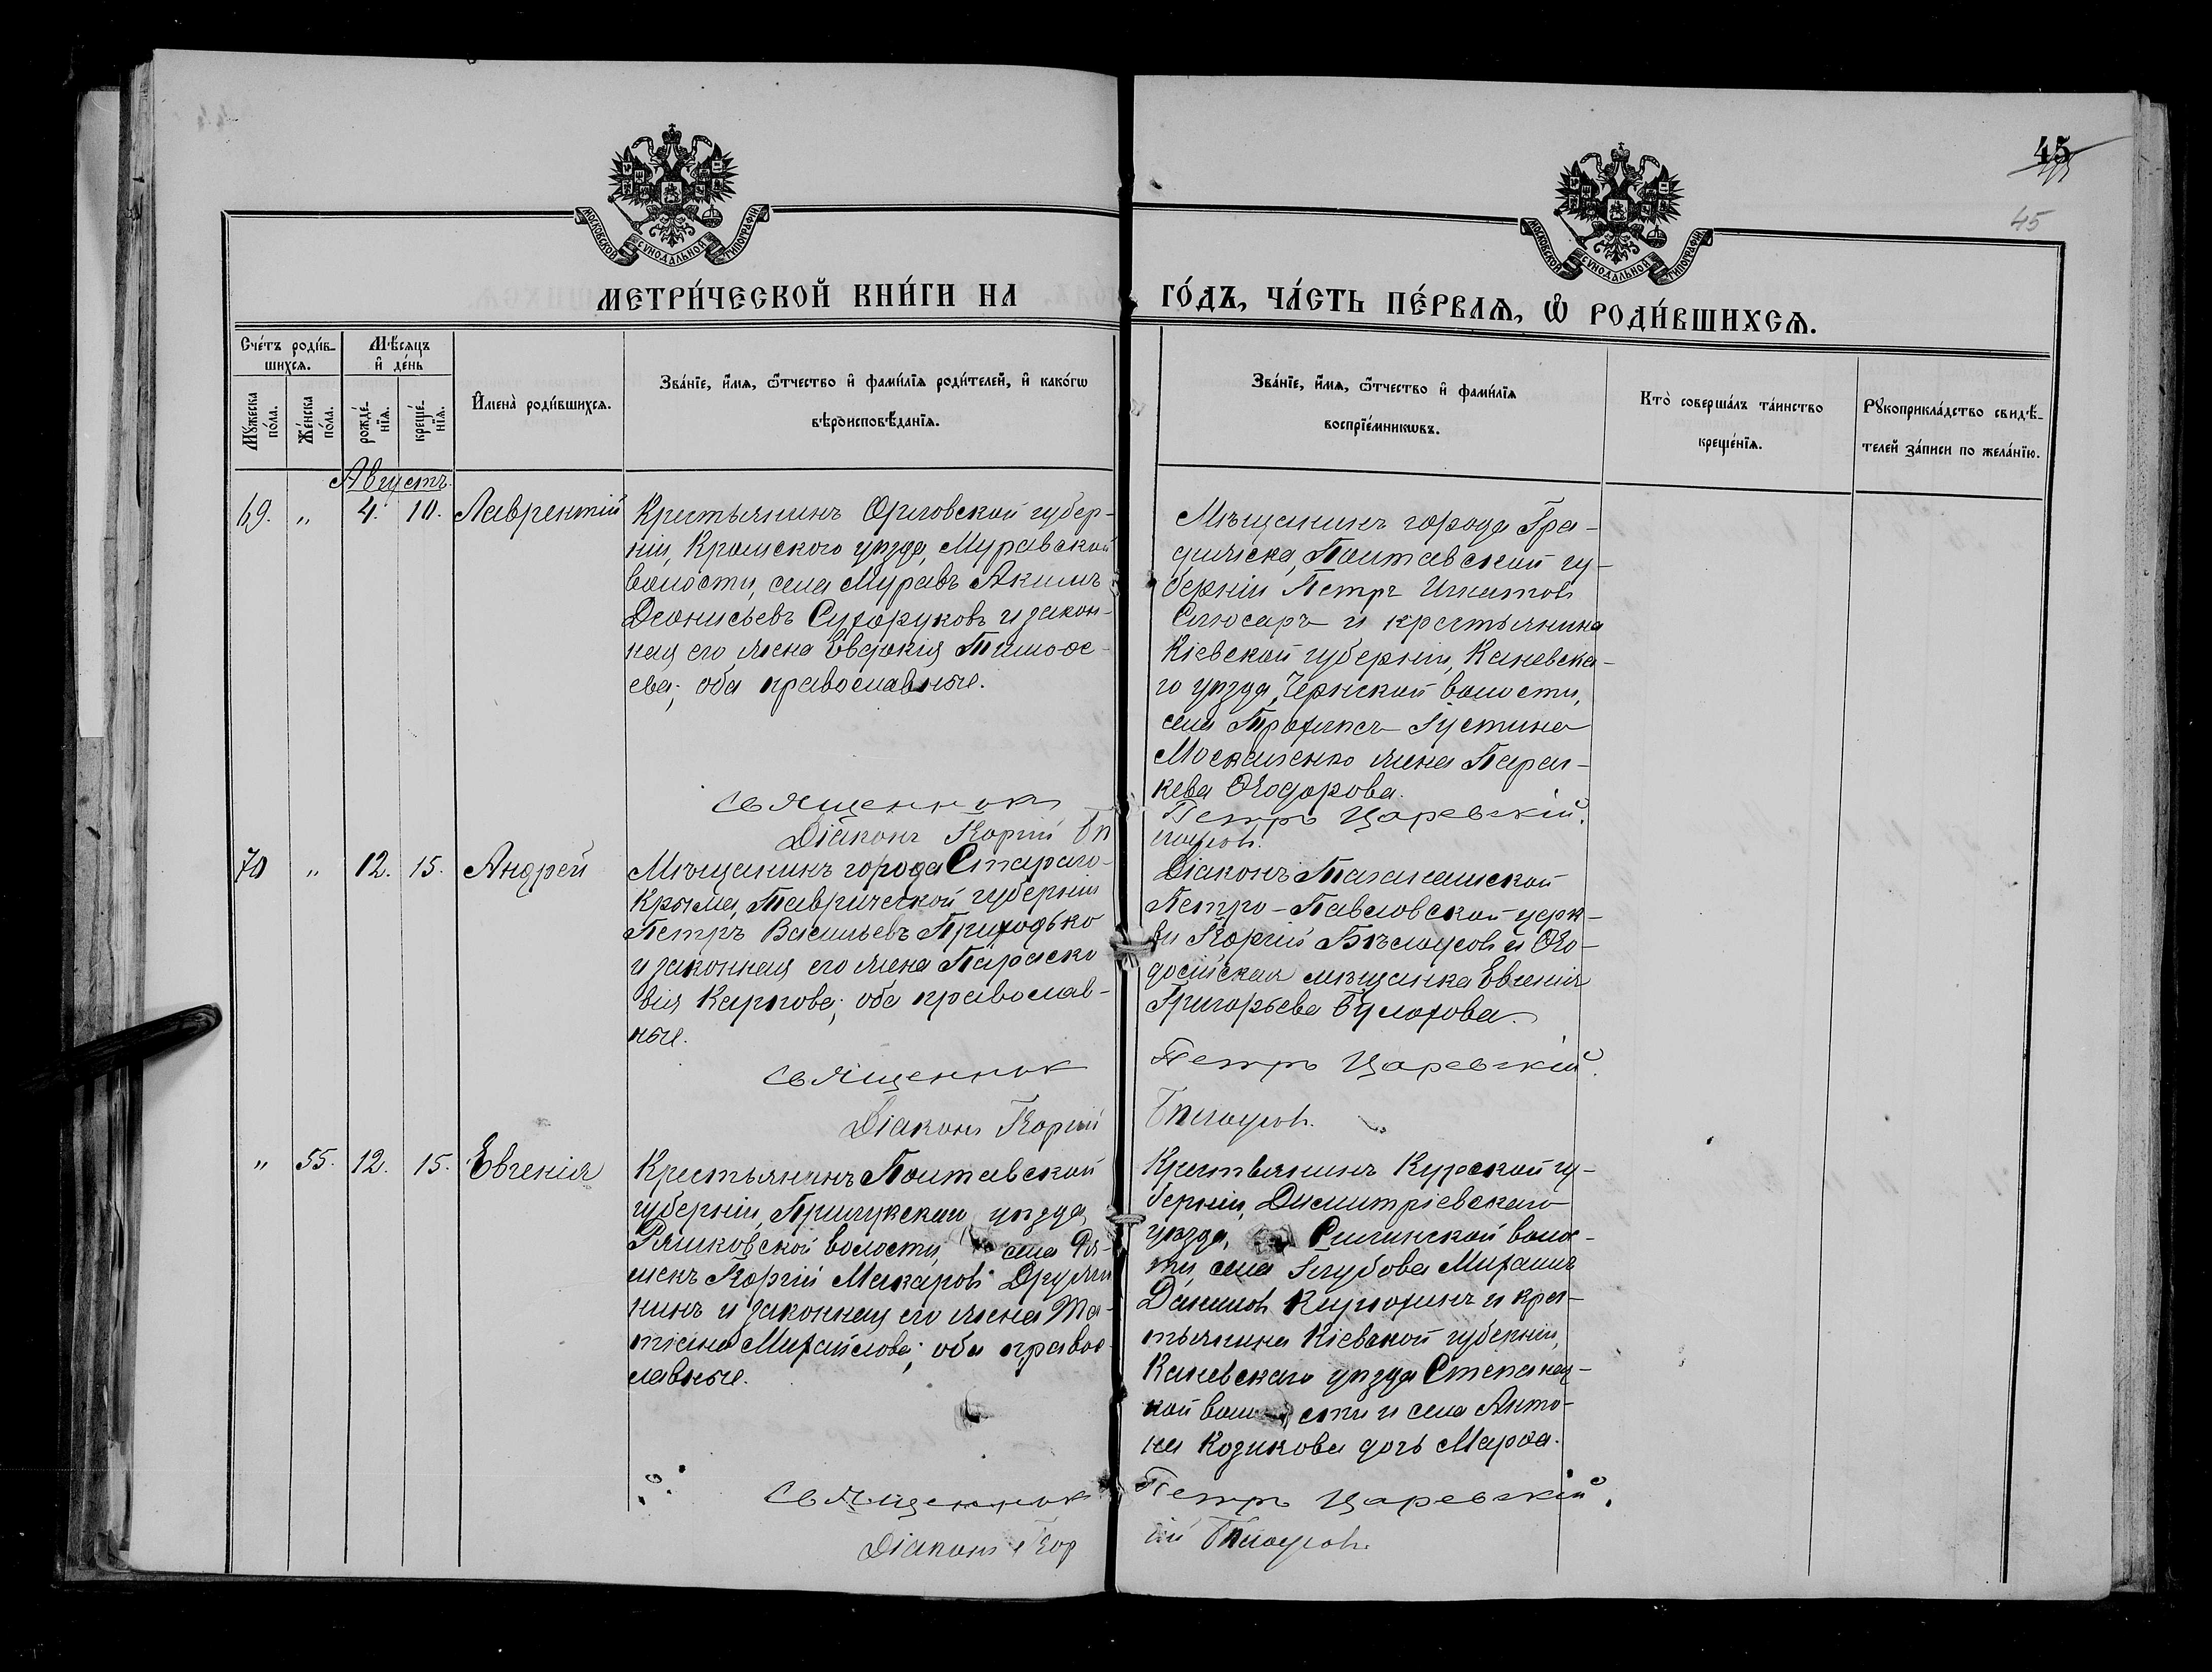 45
45
МОСКОВСКОЙ СѴНОДАЛЬНОЙ ТИПОГРАФІИ
МОСКОВСКОЙ СѴНОДАЛЬНОЙ ТИПОГРАФІИ
МЕТРИ́ЧЕСКОЙ КНИ́ГИ НА
ГО́ДЪ, ЧА́СТЬ ПЕ́РВАѦ, Ѡ҆ РОДИ́ВШИХСѦ.
Сче́тъ роди́в-
шихсѧ.
Мѣ́сѧцъ
и҆ де́нь
Мꙋ́жеска
по́ла.
Же́нска
по́ла.
рожде́-
нїѧ.
креще́-
нїѧ.
И҆мена̀ роди́вшихсѧ.
Зва́нїе, и҆́мѧ, ѻ҆́тчество и҆ фами́лїѧ роди́телей, и҆ како́гѡ
вѣроисповѣ́данїѧ.
Зва́нїе, и҆́мѧ, ѻ҆́тчество и҆ фами́лїѧ
воспрїе́мникѡвъ.
Кто̀ соверша́лъ та́инство
креще́нїѧ.
Рꙋкоприкла́дство свидѣ́-
телей за́писи по жела́нїю.
Августъ.
69. " 4. 10. Лаврентій
Крестьянинъ Орловской губер-
ніи, Кромского уѣзда, Муравской
волости, села Муравъ Акимъ
Деонисьевъ Сухоруковъ и закон-
ная его жена Евдокія Тимоѳе-
ева; оба православные.
Мѣщанинъ города Гра-
дижска, Полтавской гу-
берніи Петръ Игнатовъ
Слюсарь и крестьянина
Кіевской губерніи, Каневска-
го уѣзда, волости,
села Іустина
Москаленко жена Парас-
кева Ѳеодорова.
Священникъ Петръ Царевскій.
Діаконъ Георгій Бѣ лоусовъ.
70 " 12. 15. Андрей
Мѣщанинъ города Стараго-
Крыма, Таврической губерніи
Петръ Васильевъ Приходько
и законная его жена Параске
вія Карпова; оба православ-
ные.
Діаконъ
Петро-Павловской церк-
ви Георгій Бѣлоусовъ и Ѳео-
досійская мѣщанка Евгенія
Григорьева
Священникъ Петръ Царевскій.
Діаконъ Георгій Бѣлоусовъ.
" 55. 12. 15. Евгенія
Крестьянинъ Полтавской
губерніи, Прилукскаго уѣзда,
Ряшковской волости, села Ря-
шекъ Георгій Макаровъ Дружи
нинъ и законная его жена Та-
тіана Михайлова; оба правос
лавные.
Крестьянинъ Курской гу-
берніи, Димитріевскаго
уѣзда, волос-
ти, села Глубова Михаилъ
Даниловъ и крес-
тьянина Кіевской губерніи,
Каневскаго уѣзда Степанец-
кой волости и села Анто-
на Козикова дочь Марѳа.
Священникъ Петръ Царевскій.
Діаконъ Геор гій Бѣлоусовъ.